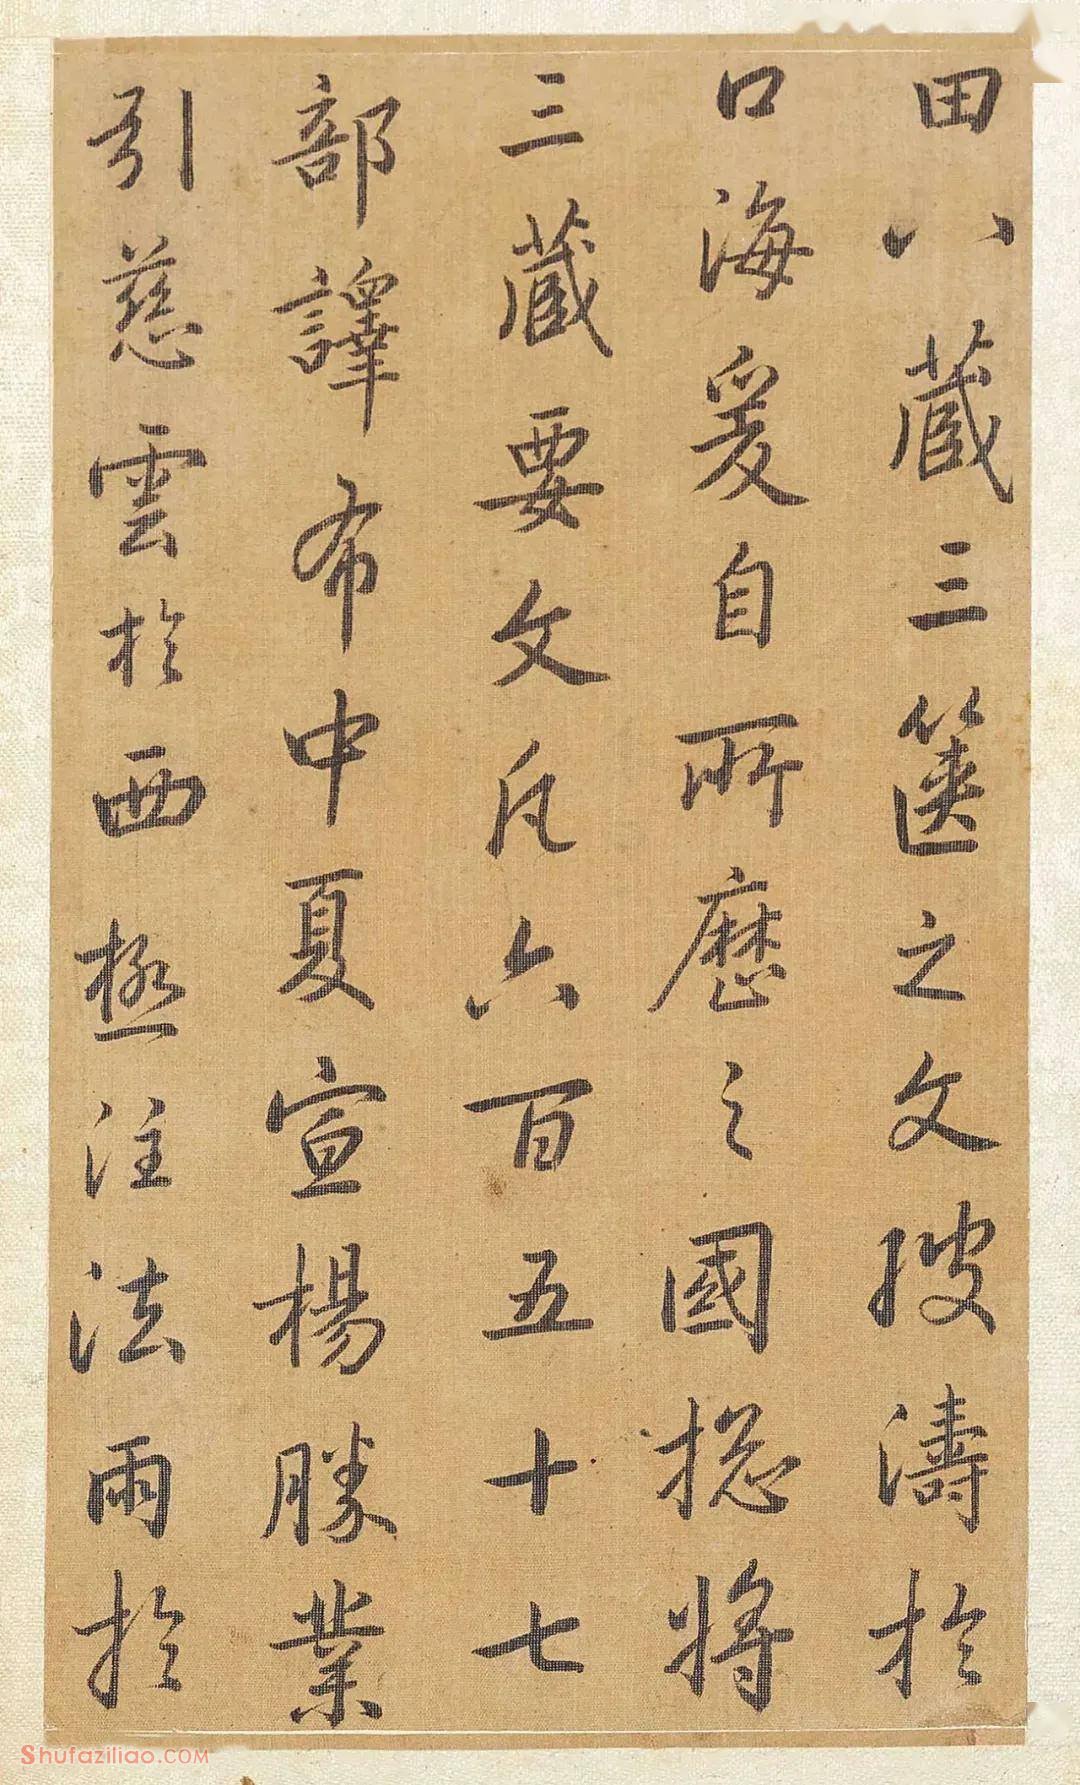 田八藏三篋之文搜濤於
口海爰自所歷之國揔將
三藏要文凡六百五十七
部譯布中夏宣楊勝業
引慈雲於西極注法雨於
Shufaziliao.COM